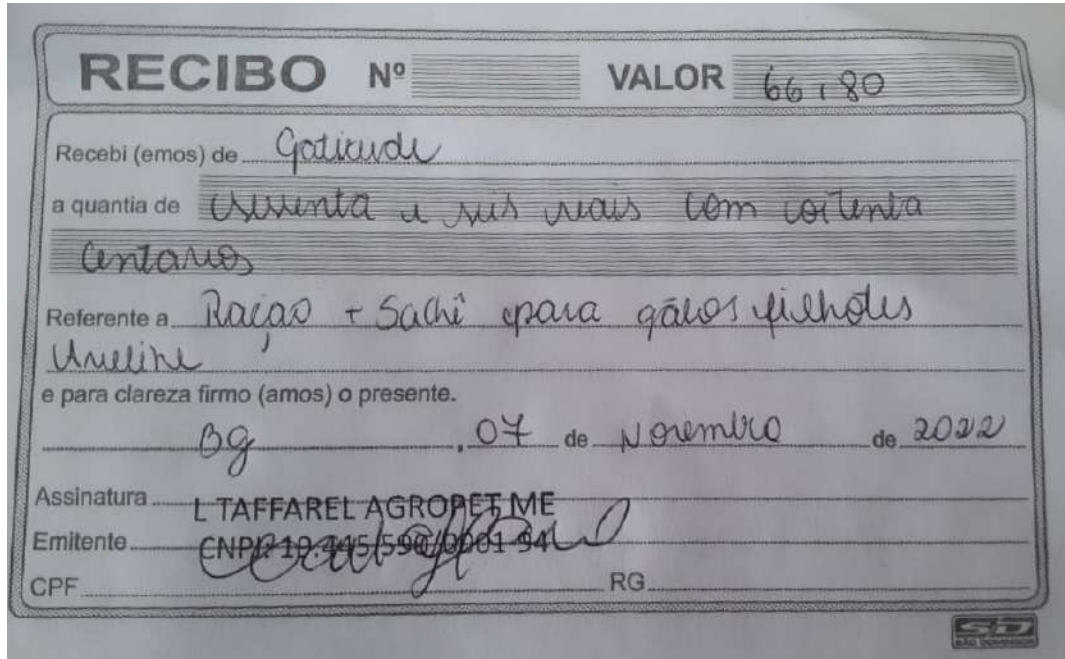 RECIBO Nº VALOR 66,80
Recebi (emos) de Gatitude
a quantia de sessenta e seis reais com oitenta
centavos
Referente a Ração + Sachê para gatos filhotes
e para clareza firmo (amos) o presente.
BG, 07 de Novembro de 2022
Assinatura L TAFFAREL AGROPET ME
Emitente CNPJ
CPF RG
SD
SÃO DOMINGOS